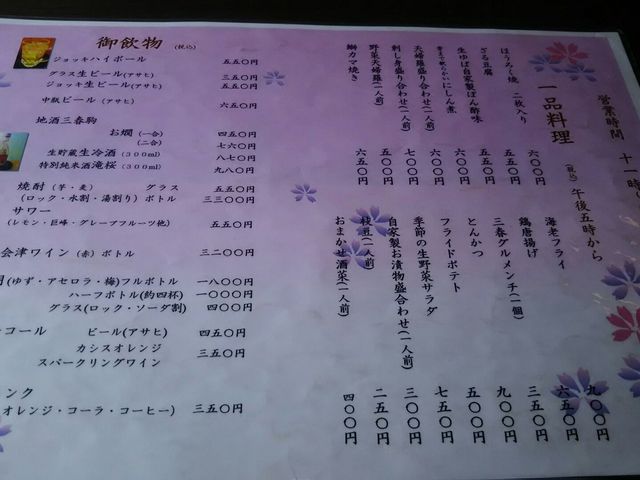 営業時間 十一時
午後五時から
一品料理 (税込)
ほうろく焼 二枚入り 六〇〇円
ざる豆腐 五五〇円
生ゆば自家製ぽん酢味 五五〇円
骨まで軟らかいにしん煮 七〇〇円
天婦羅盛り合わせ(一人前) 六〇〇円
刺し身盛り合わせ(一人前) 七〇〇円
野菜天婦羅(一人前) 六〇〇円
鰤カマ焼き 六五〇円
海老フライ 九〇〇円
鶏唐揚げ 六五〇円
三春グルメンチ(一個) 三五〇円
とんかつ 九〇〇円
フライドポテト 五〇〇円
季節の生野菜サラダ 七五〇円
自家製お漬物盛合わせ(一人前) 三〇〇円
枝豆(一人前) 二五〇円
おまかせ酒菜(一人前) 四〇〇円
御飲物 (税込)
ジョッキハイボール 五五〇円
グラス生ビール(アサヒ) 三五〇円
ジョッキ生ビール(アサヒ) 五五〇円
中瓶ビール(アサヒ) 六五〇円
地酒三春駒
お燗(一合) 四五〇円
(二合) 七六〇円
生貯蔵生冷酒(300ml) 八七〇円
特別純米酒滝桜(300ml) 九八〇円
焼酎(芋・麦) グラス 五五〇円
(ロック・水割・湯割り)ボトル 三三〇〇円
サワー
(レモン・巨峰・グレープフルーツ他) 五五〇円
会津ワイン(赤)ボトル 三二〇〇円
(ゆず・アセロラ・梅)フルボトル 一八〇〇円
ハーフボトル(約四杯) 一〇〇〇円
グラス(ロック・ソーダ割) 四〇〇円
コール ビール(アサヒ) 四五〇円
カシスオレンジ 三五〇円
スパークリングワイン
ンク
オレンジ・コーラ・コーヒー) 三五〇円